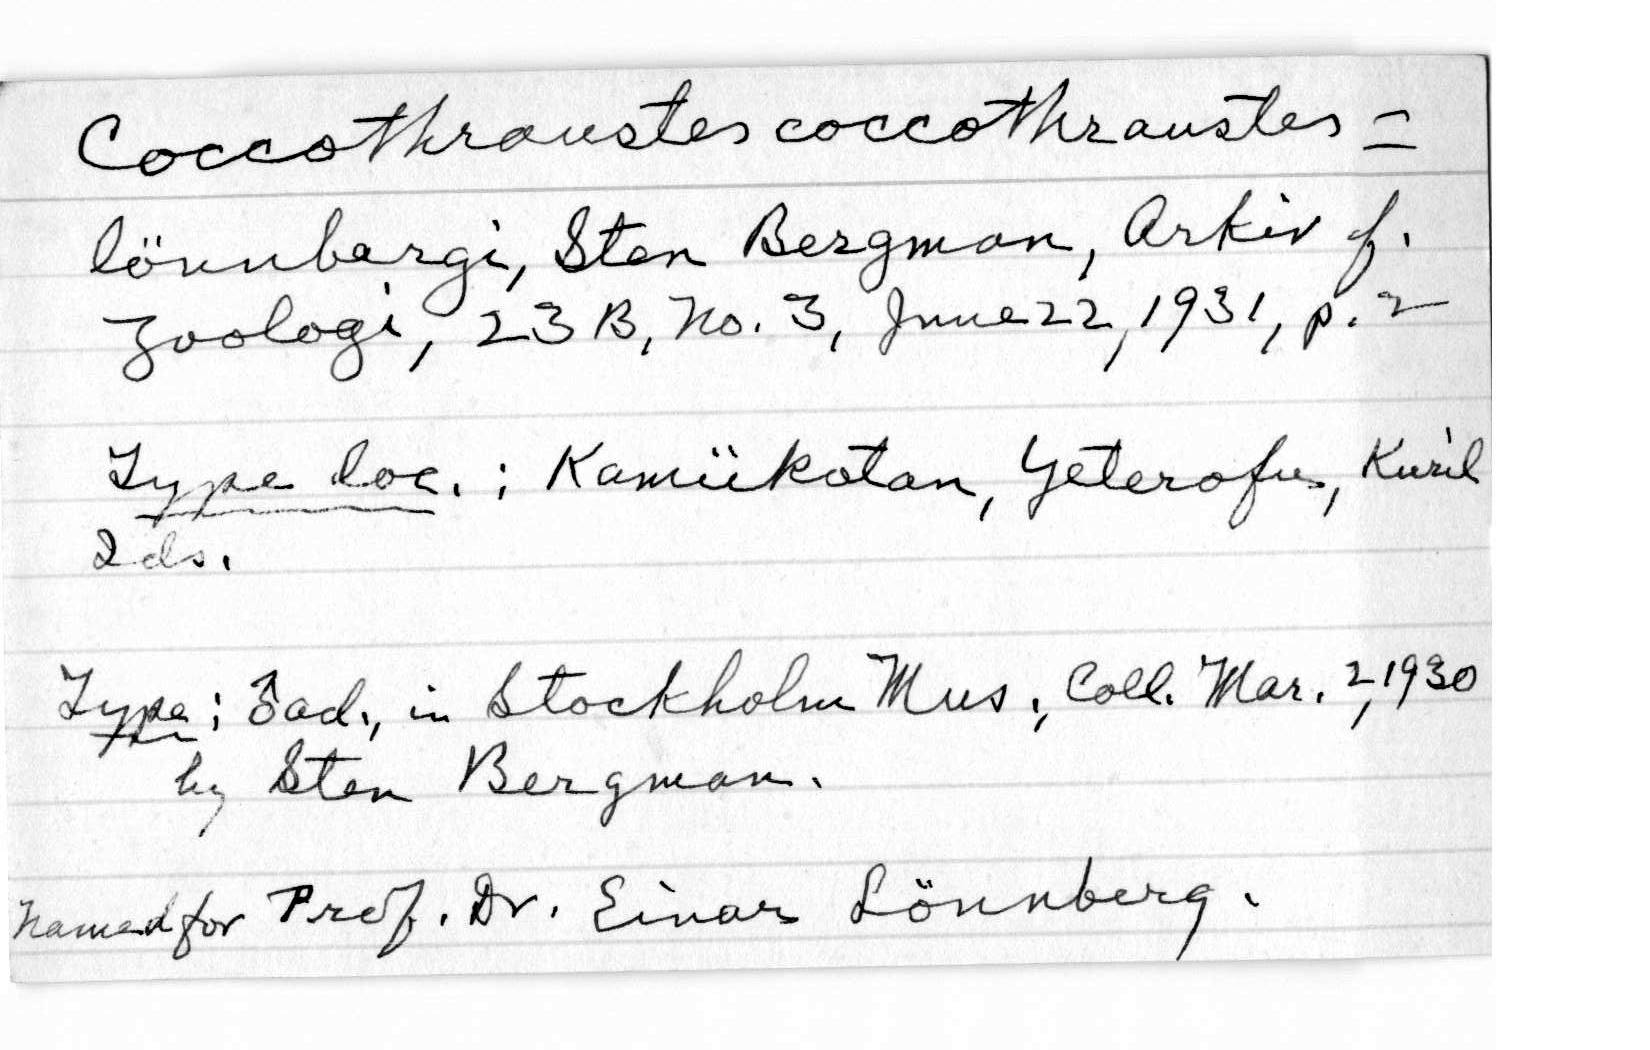 Coccothraustes coccothraustes =
lönnbergi, Sten Bergman, Arkiv f.
Zoologi, 23 B, No. 3, June 22, 1931, p. 2
Type loc. : Kamiikotan, Yeterofu, Kuril
Ids.
Type : ♂ ad., in Stockholm Mus., Coll. Mar. 2, 1930
by Sten Bergman.
Named for Prof. Dr. Einar Lönnberg.